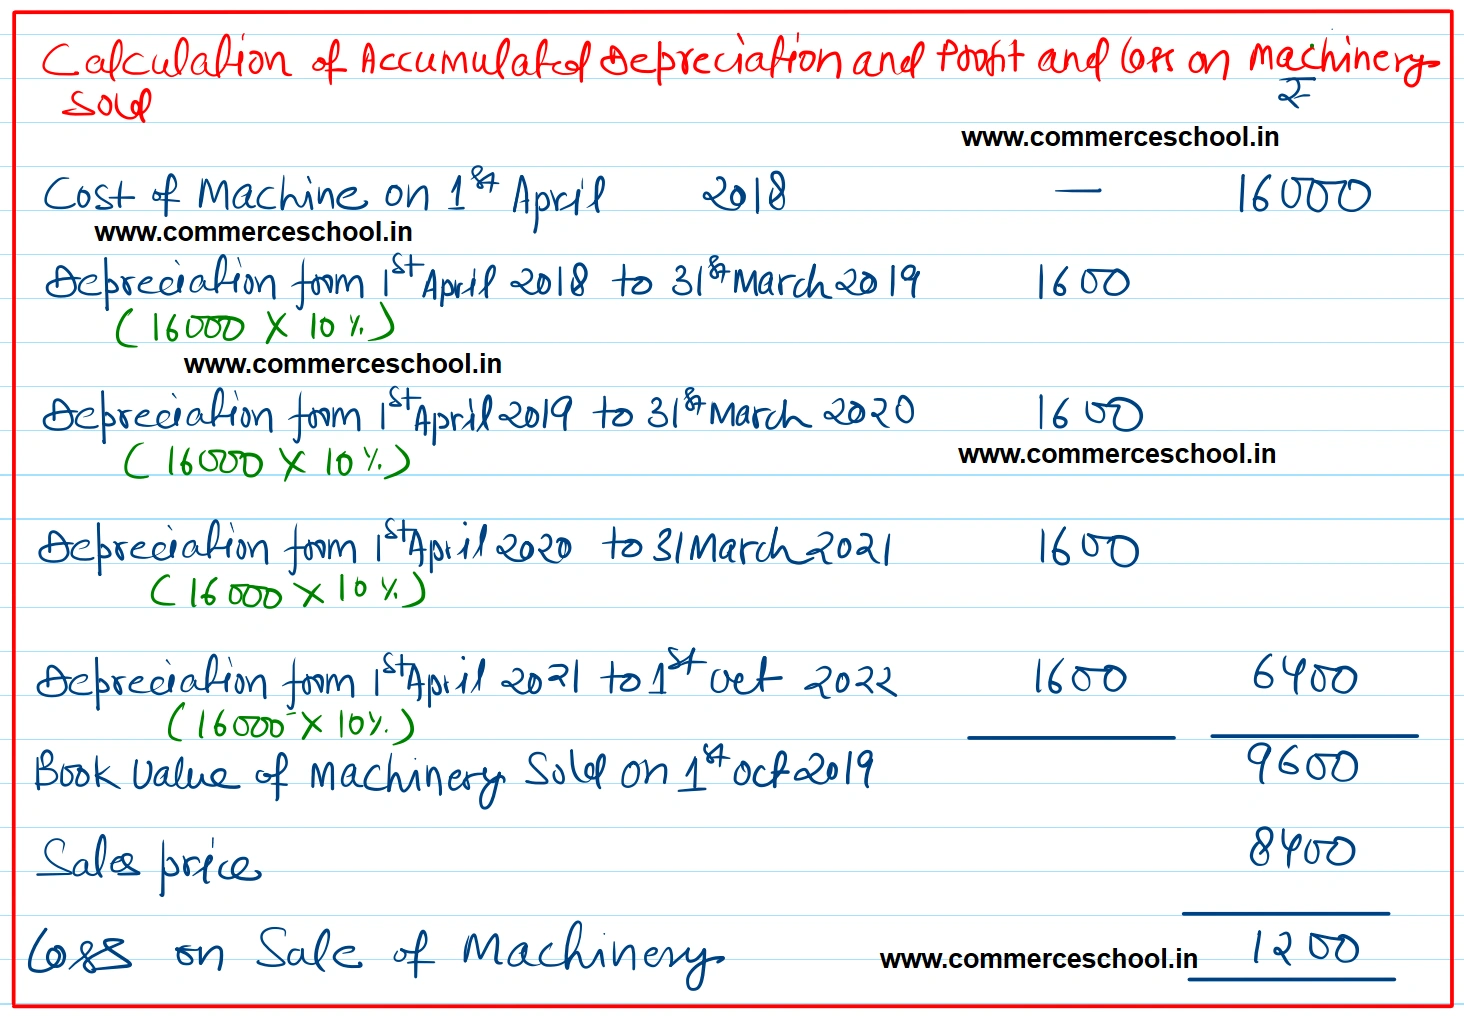 Calculation of Accumulated Depreciation and Profit and loss on Machinery
Sold
₹
www.commerceschool.in
Cost of Machine on 1st April 2018 — 16000
www.commerceschool.in
Depreciation from 1st April 2018 to 31st March 2019 1600
(16000 X 10%)
www.commerceschool.in
Depreciation from 1st April 2019 to 31st March 2020 1600
(16000 X 10%)
www.commerceschool.in
Depreciation from 1st April 2020 to 31 March 2021 1600
(16000 X 10%)
Depreciation from 1st April 2021 to 1st Oct 2022 1600 6400
(16000 X 10%)
Book Value of Machinery Sold on 1st Oct 2019 9600
Sales price 8400
Loss on Sale of Machinery 1200
www.commerceschool.in